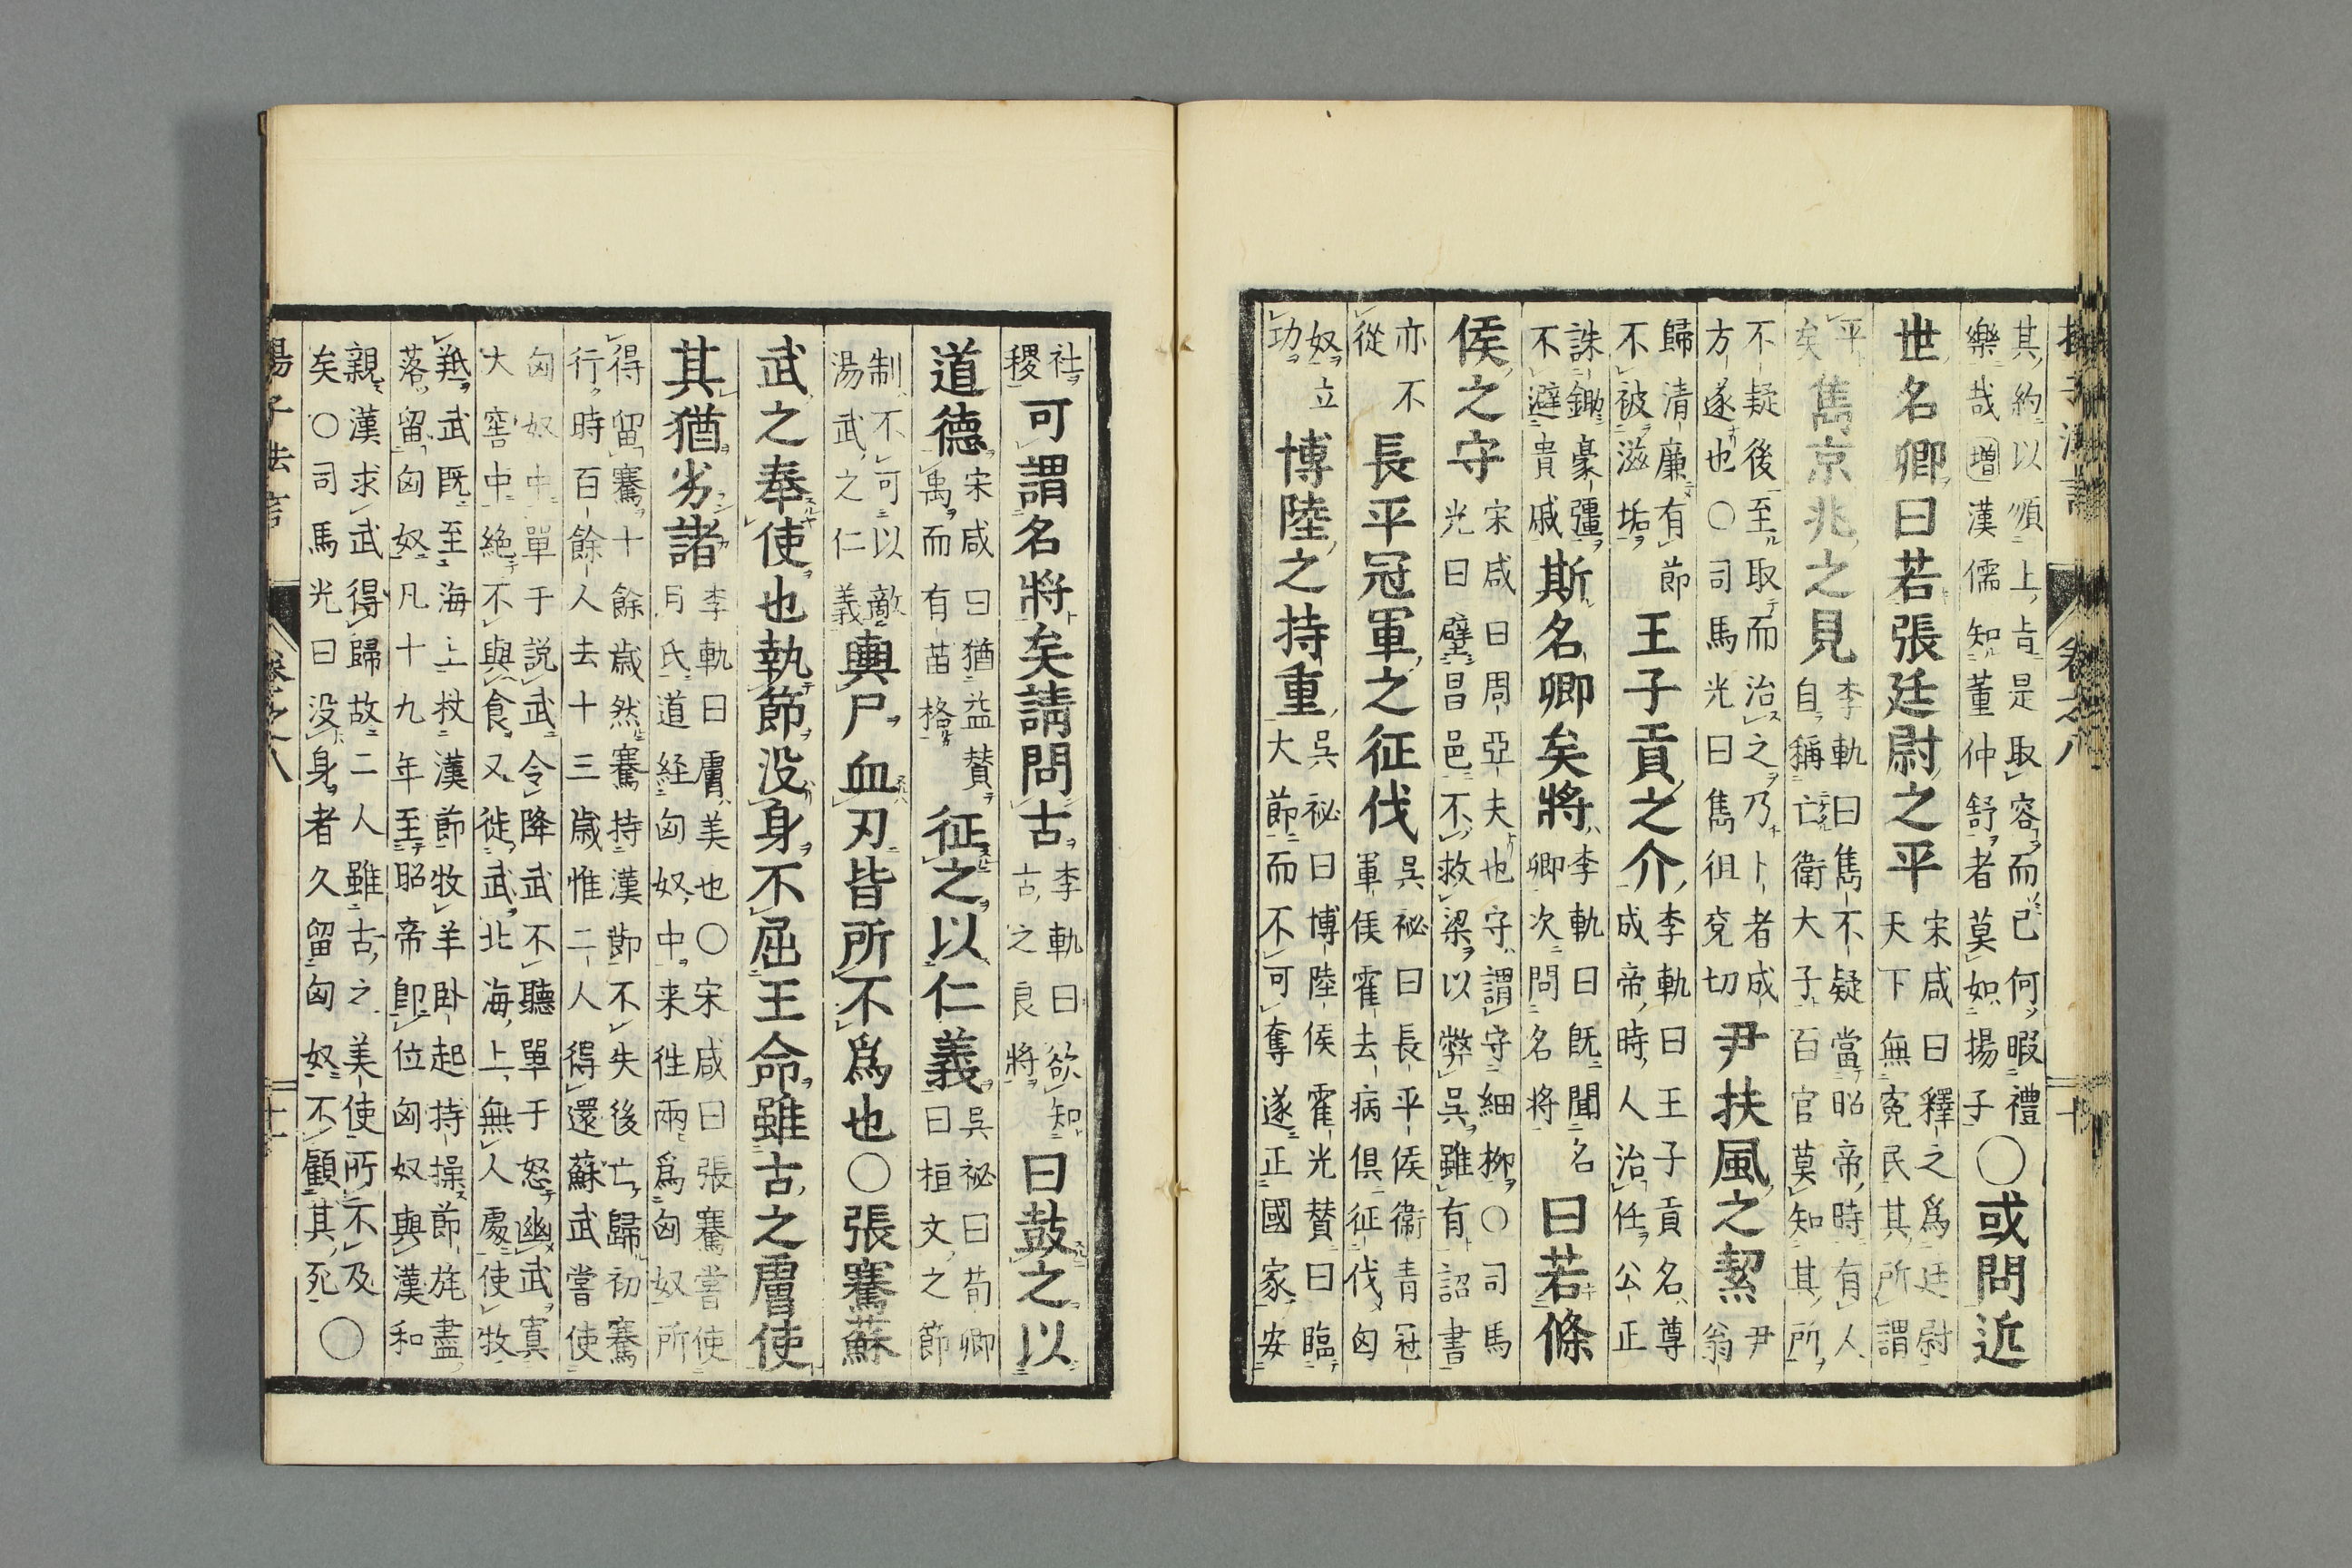 揚子法言 卷之八 十
其約以順上旨是取容而已何暇禮
樂哉增漢儒知董仲舒者莫如揚子
○或問近
世名卿曰若張廷尉之平
宋咸曰釋之爲廷尉
天下無冤民其所謂
平
矣
雋京兆之見
李軌曰雋不疑當昭帝時有人
自稱亡衛大子百官莫知其所
不疑後至取而治之乃卜者成
方遂也○司馬光曰雋徂兗切
尹扶風之絜
尹
翁
歸清廉有節
不被滋垢
王子貢之介
李軌曰王子貢名尊
成帝時人治任公正
誅鋤豪彊
不避貴戚
斯名卿矣將
李軌曰既聞名
卿次問名将
曰若條
侯之守
宋咸曰周亞夫也守謂守細柳○司馬
光曰壁昌邑不救梁以弊吳雖有詔書
亦不
從
長平冠軍之征伐
吳祕曰長平侯衞青冠
軍侯霍去病俱征伐匈
奴立
功
博陸之持重
吳祕曰博陸侯霍光贊曰臨
大節而不可奪遂正國家安
社
稷
可謂名將矣請問古
李軌曰欲知
古之良將
曰鼓之以
道德
宋咸曰猶益贊
禹而有苗格
征之以仁義
吳祕曰荀卿
曰桓文之節
制不可以敵
湯武之仁義
輿尸血刃皆所不爲也○張騫蘇
武之奉使也執節没身不屈王命雖古之膚使
其猶劣諸
李軌曰膚美也○宋咸曰張騫嘗使
月氏道経匈奴中来徃兩爲匈奴所
得留騫十餘歳然騫持漢節不失後亡歸初騫
行時百餘人去十三歳惟二人得還蘇武嘗使
匈奴中單于説武令降武不聽單于怒幽武寘
大窖中絶不與食又徙武北海上無人處使牧
羝武既至海上杖漢節牧羊卧起持操節旄盡
落留匈奴凡十九年至昭帝卽位匈奴與漢和
親漢求武得歸故二人雖古之美使所不及
矣○司馬光曰没身者久留匈奴不顧其死
○
揚子法言 卷之八 十一